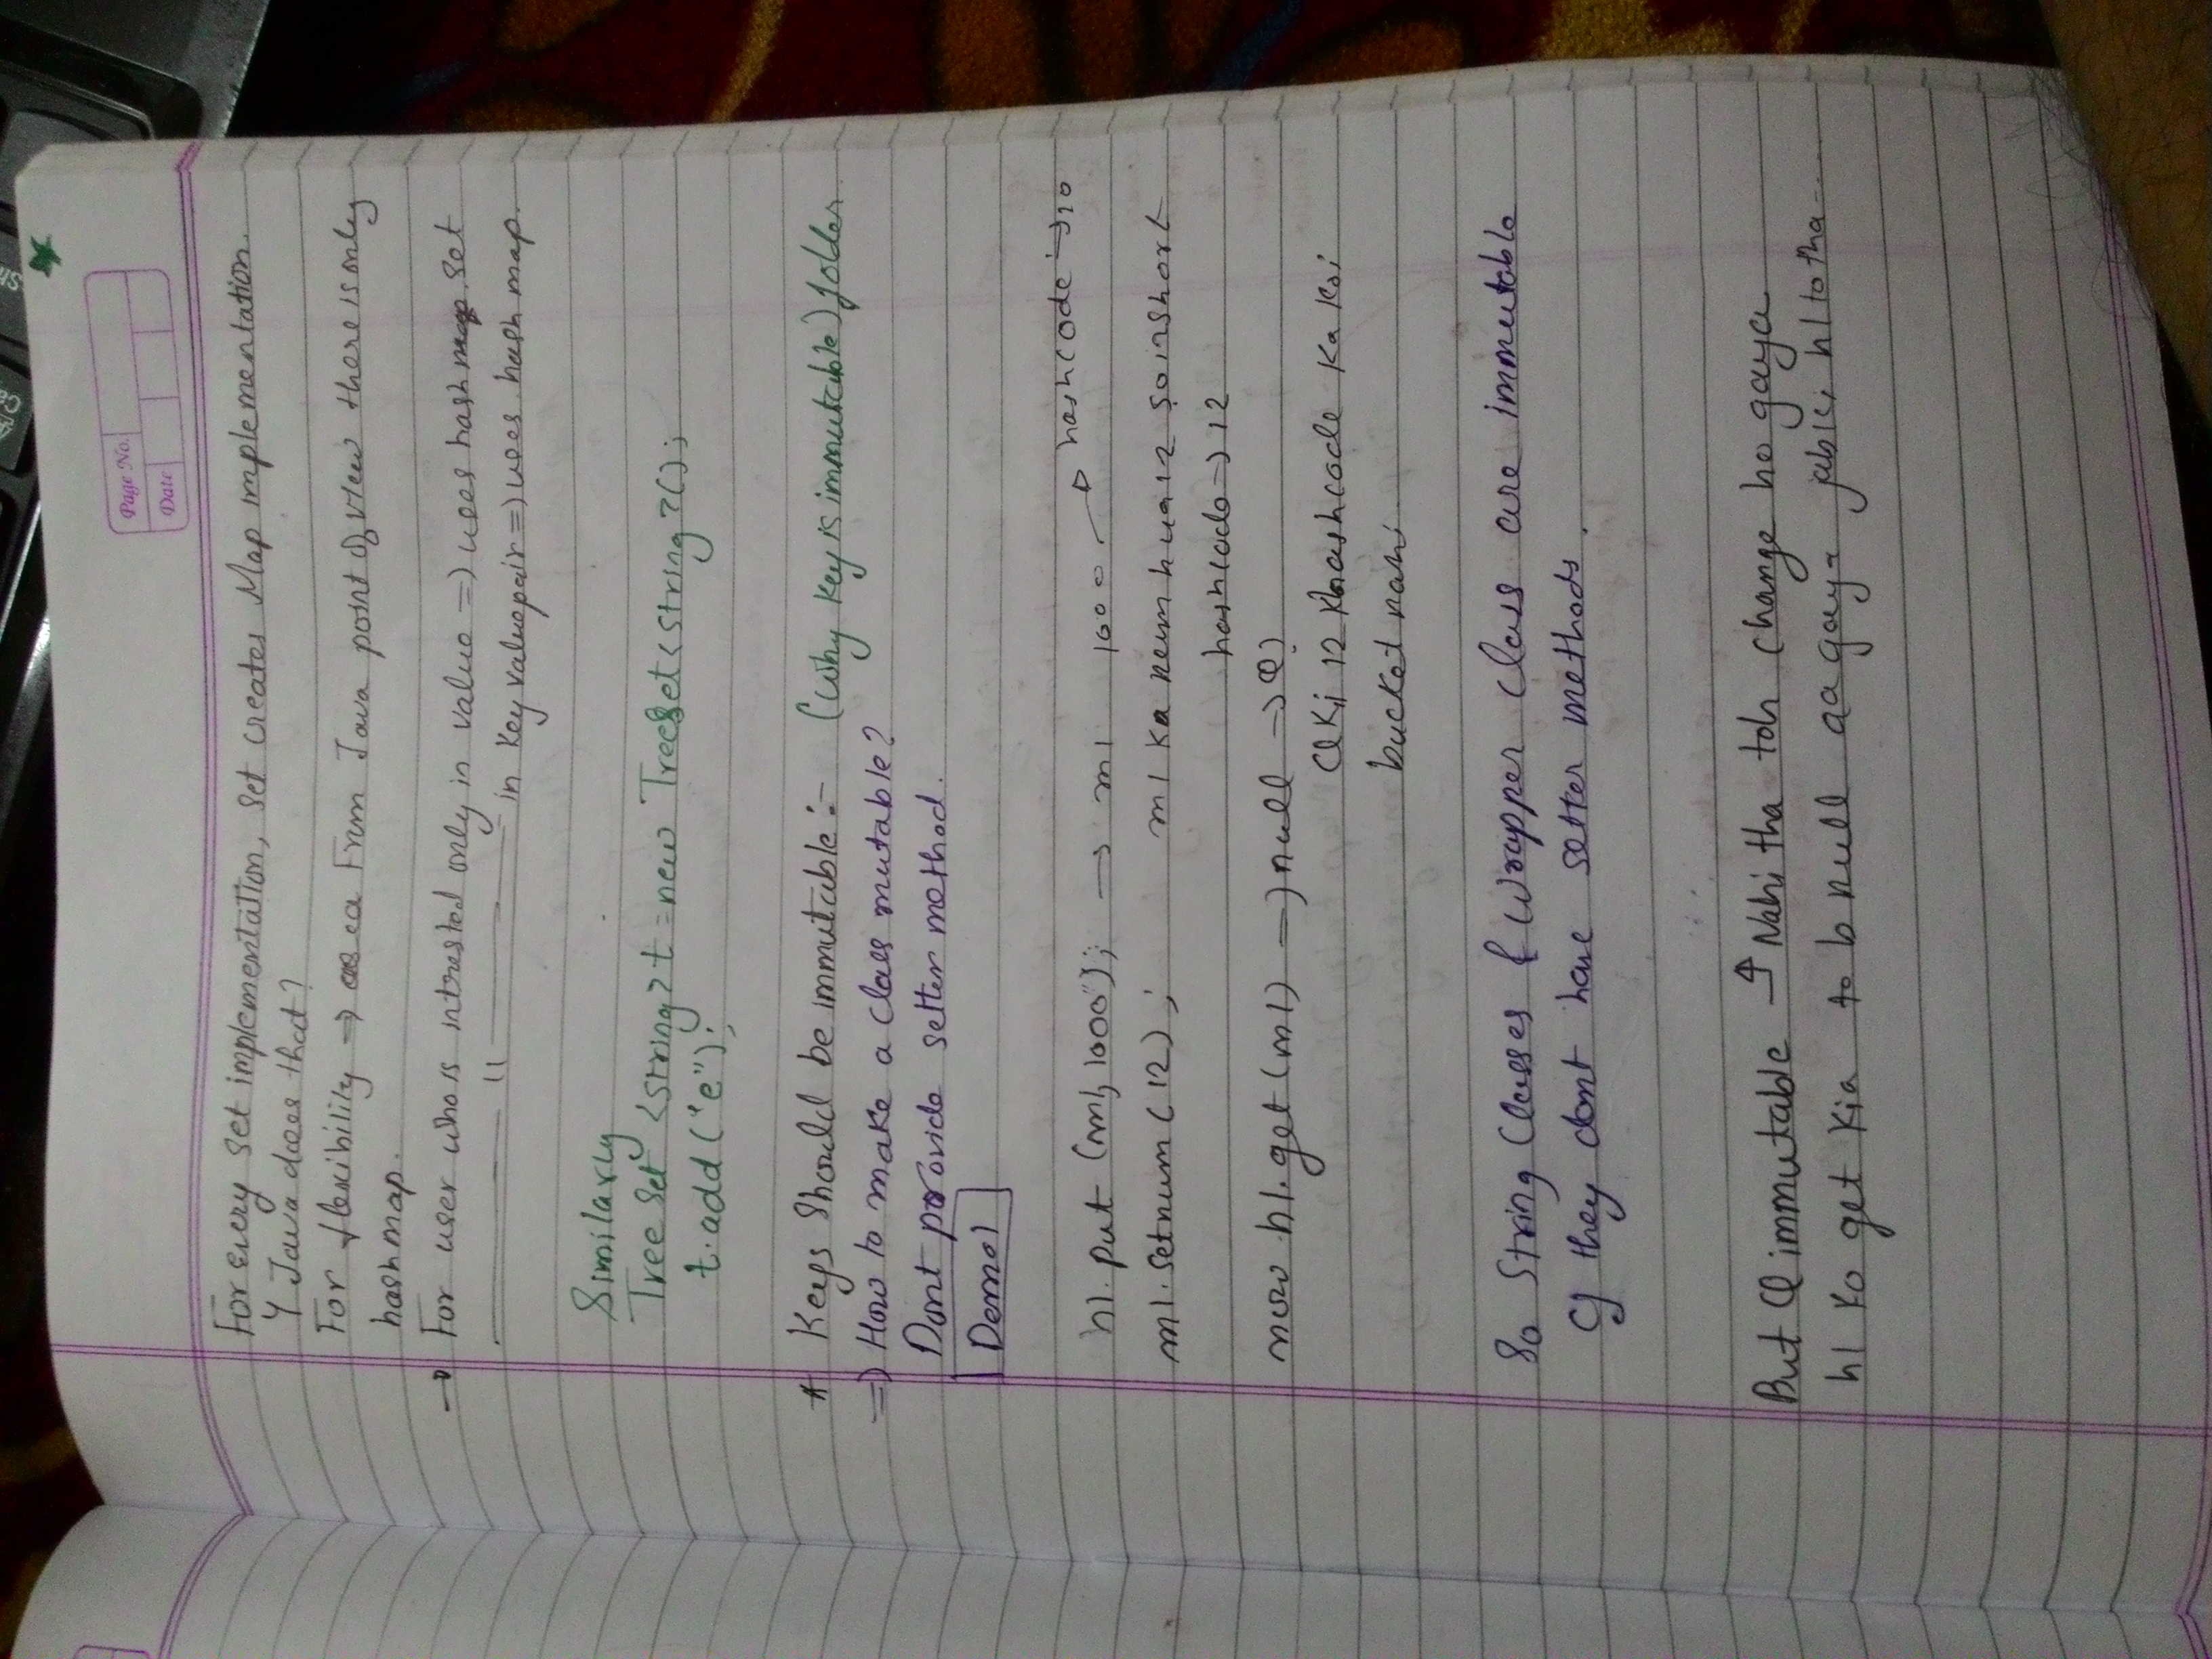 Page No.
Date
For every set implementation, set creates Map implementation.
Y Java does that?
For flexibility → as ea From Java point of view there is only
hashmap.
→ For user who is intrested only in value => uses hash map set
—— 11 —— in Key value pair => uses hash map.
Similarly
Tree Set <String> t = new TreeSet<String>();
t.add("e");
* Keys Should be immutable :- (Why key is immutable) folder
=> How to make a class mutable?
Dont provide setter method.
Demo1
h1.put (m1, 1000"); → m1 1000 → hashcode → 10
m1.setnum (12); m1 ka num hua 12 so inshort
hashcode → 12
now h1.get(m1) => null → Q?
Q Ki 12 hashcode ka koi
bucket nahi
So String Classes & Wrapper Class are immutable
they dont have setter methods.
But Q immutable ↑ Nahi tha toh change ho gaya
h1 ko get kia to b null aa gaya jabki h1 to tha --